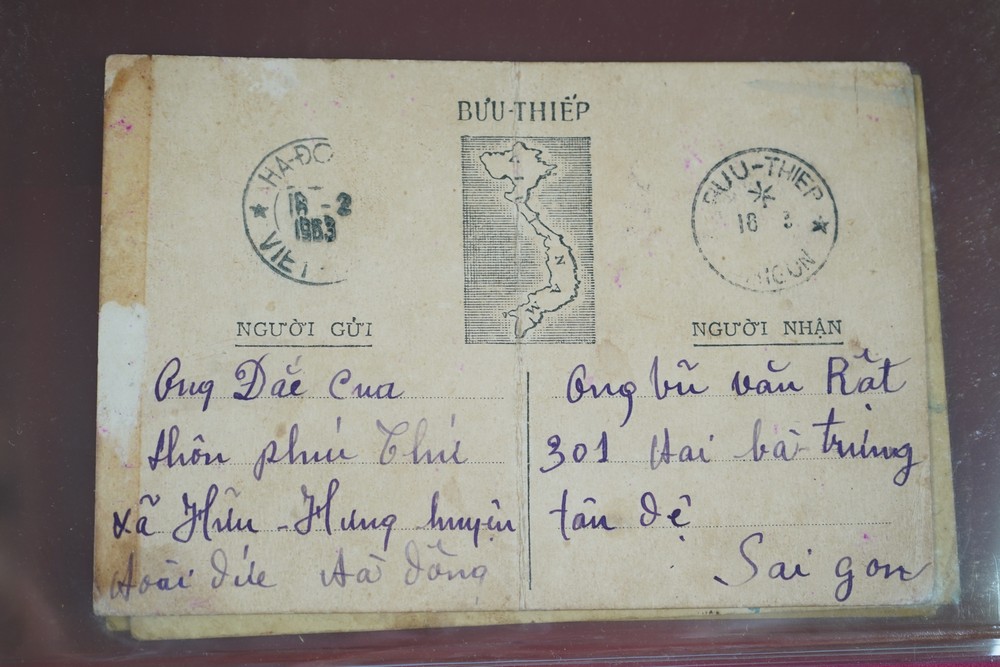 BƯU-THIẾP
HA-ĐO
18 - 2
1963
VIET
BUU-THIEP
18 3
NGƯỜI GỬI
NGƯỜI NHẬN
Ong Dắc Cua
thôn phú Thú
xã Hữu - Hưng huyện
Hoài Đức Hà Đông
Ong vũ văn Rật
301 Hai bà trưng
tân định
Sai gon